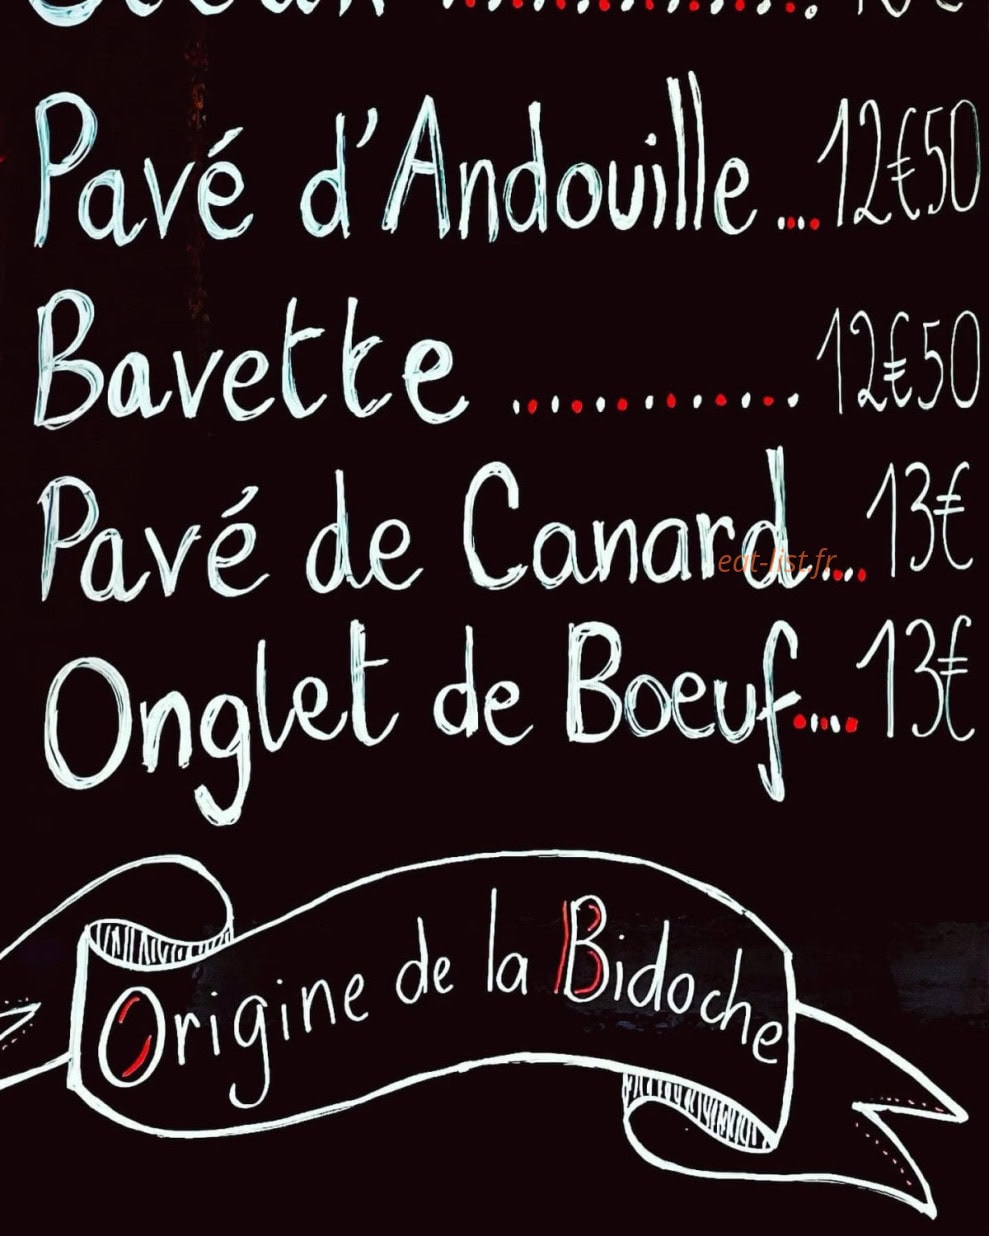 Pavé d'Andouille....12€50
Bavette ............. 12€50
Pavé de Canard.... 13€
eat-list.fr
Onglet de Boeuf..... 13€
Origine de la Bidoche